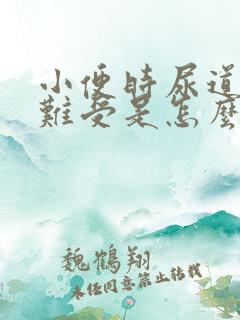 小便時尿道
難受是怎麼
魏鶴翔
未经同意禁止转载